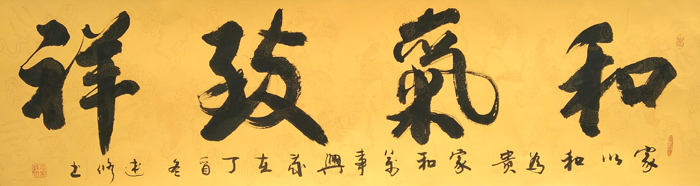 和氣致祥
家以和為貴家和萬事興歲在丁酉冬修書